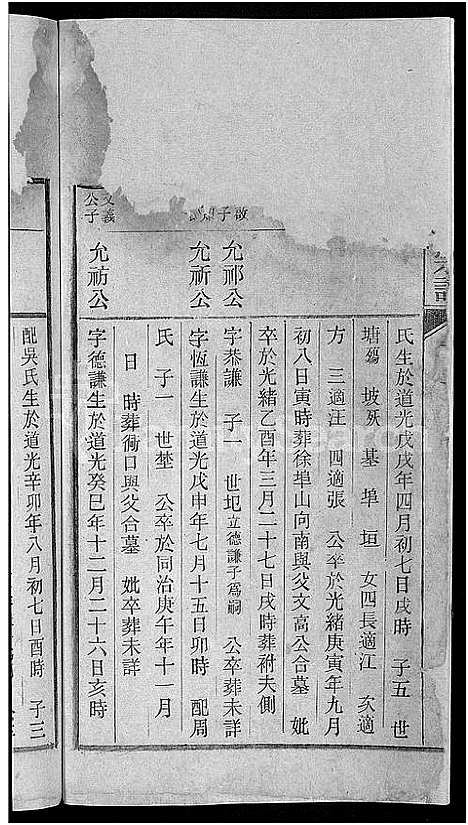 宗譜
氏生於道光戊戌年四月初七日戌時 子五 世
塘 坡 基 埠 垣 女四長適江 次適
方 三適汪 四適張 公卒於光緒庚寅年九月
初八日寅時葬徐埠山向南與父文高公合墓 妣
卒於光緒乙酉年三月二十七日戌時葬祔夫側
允祁公
字恭謙 子一 世圯立德謙子爲嗣 公卒葬未詳
允祈公
字恆謙生於道光戊申年七月十五日卯時 配周
氏 子一 世埜 公卒於同治庚午年十一月
日 時葬衕口與父合墓 妣卒葬未詳
文義公子
允祊公
字德謙生於道光癸巳年十二月二十六日亥時
配吳氏生於道光辛卯年八月初七日酉時 子三